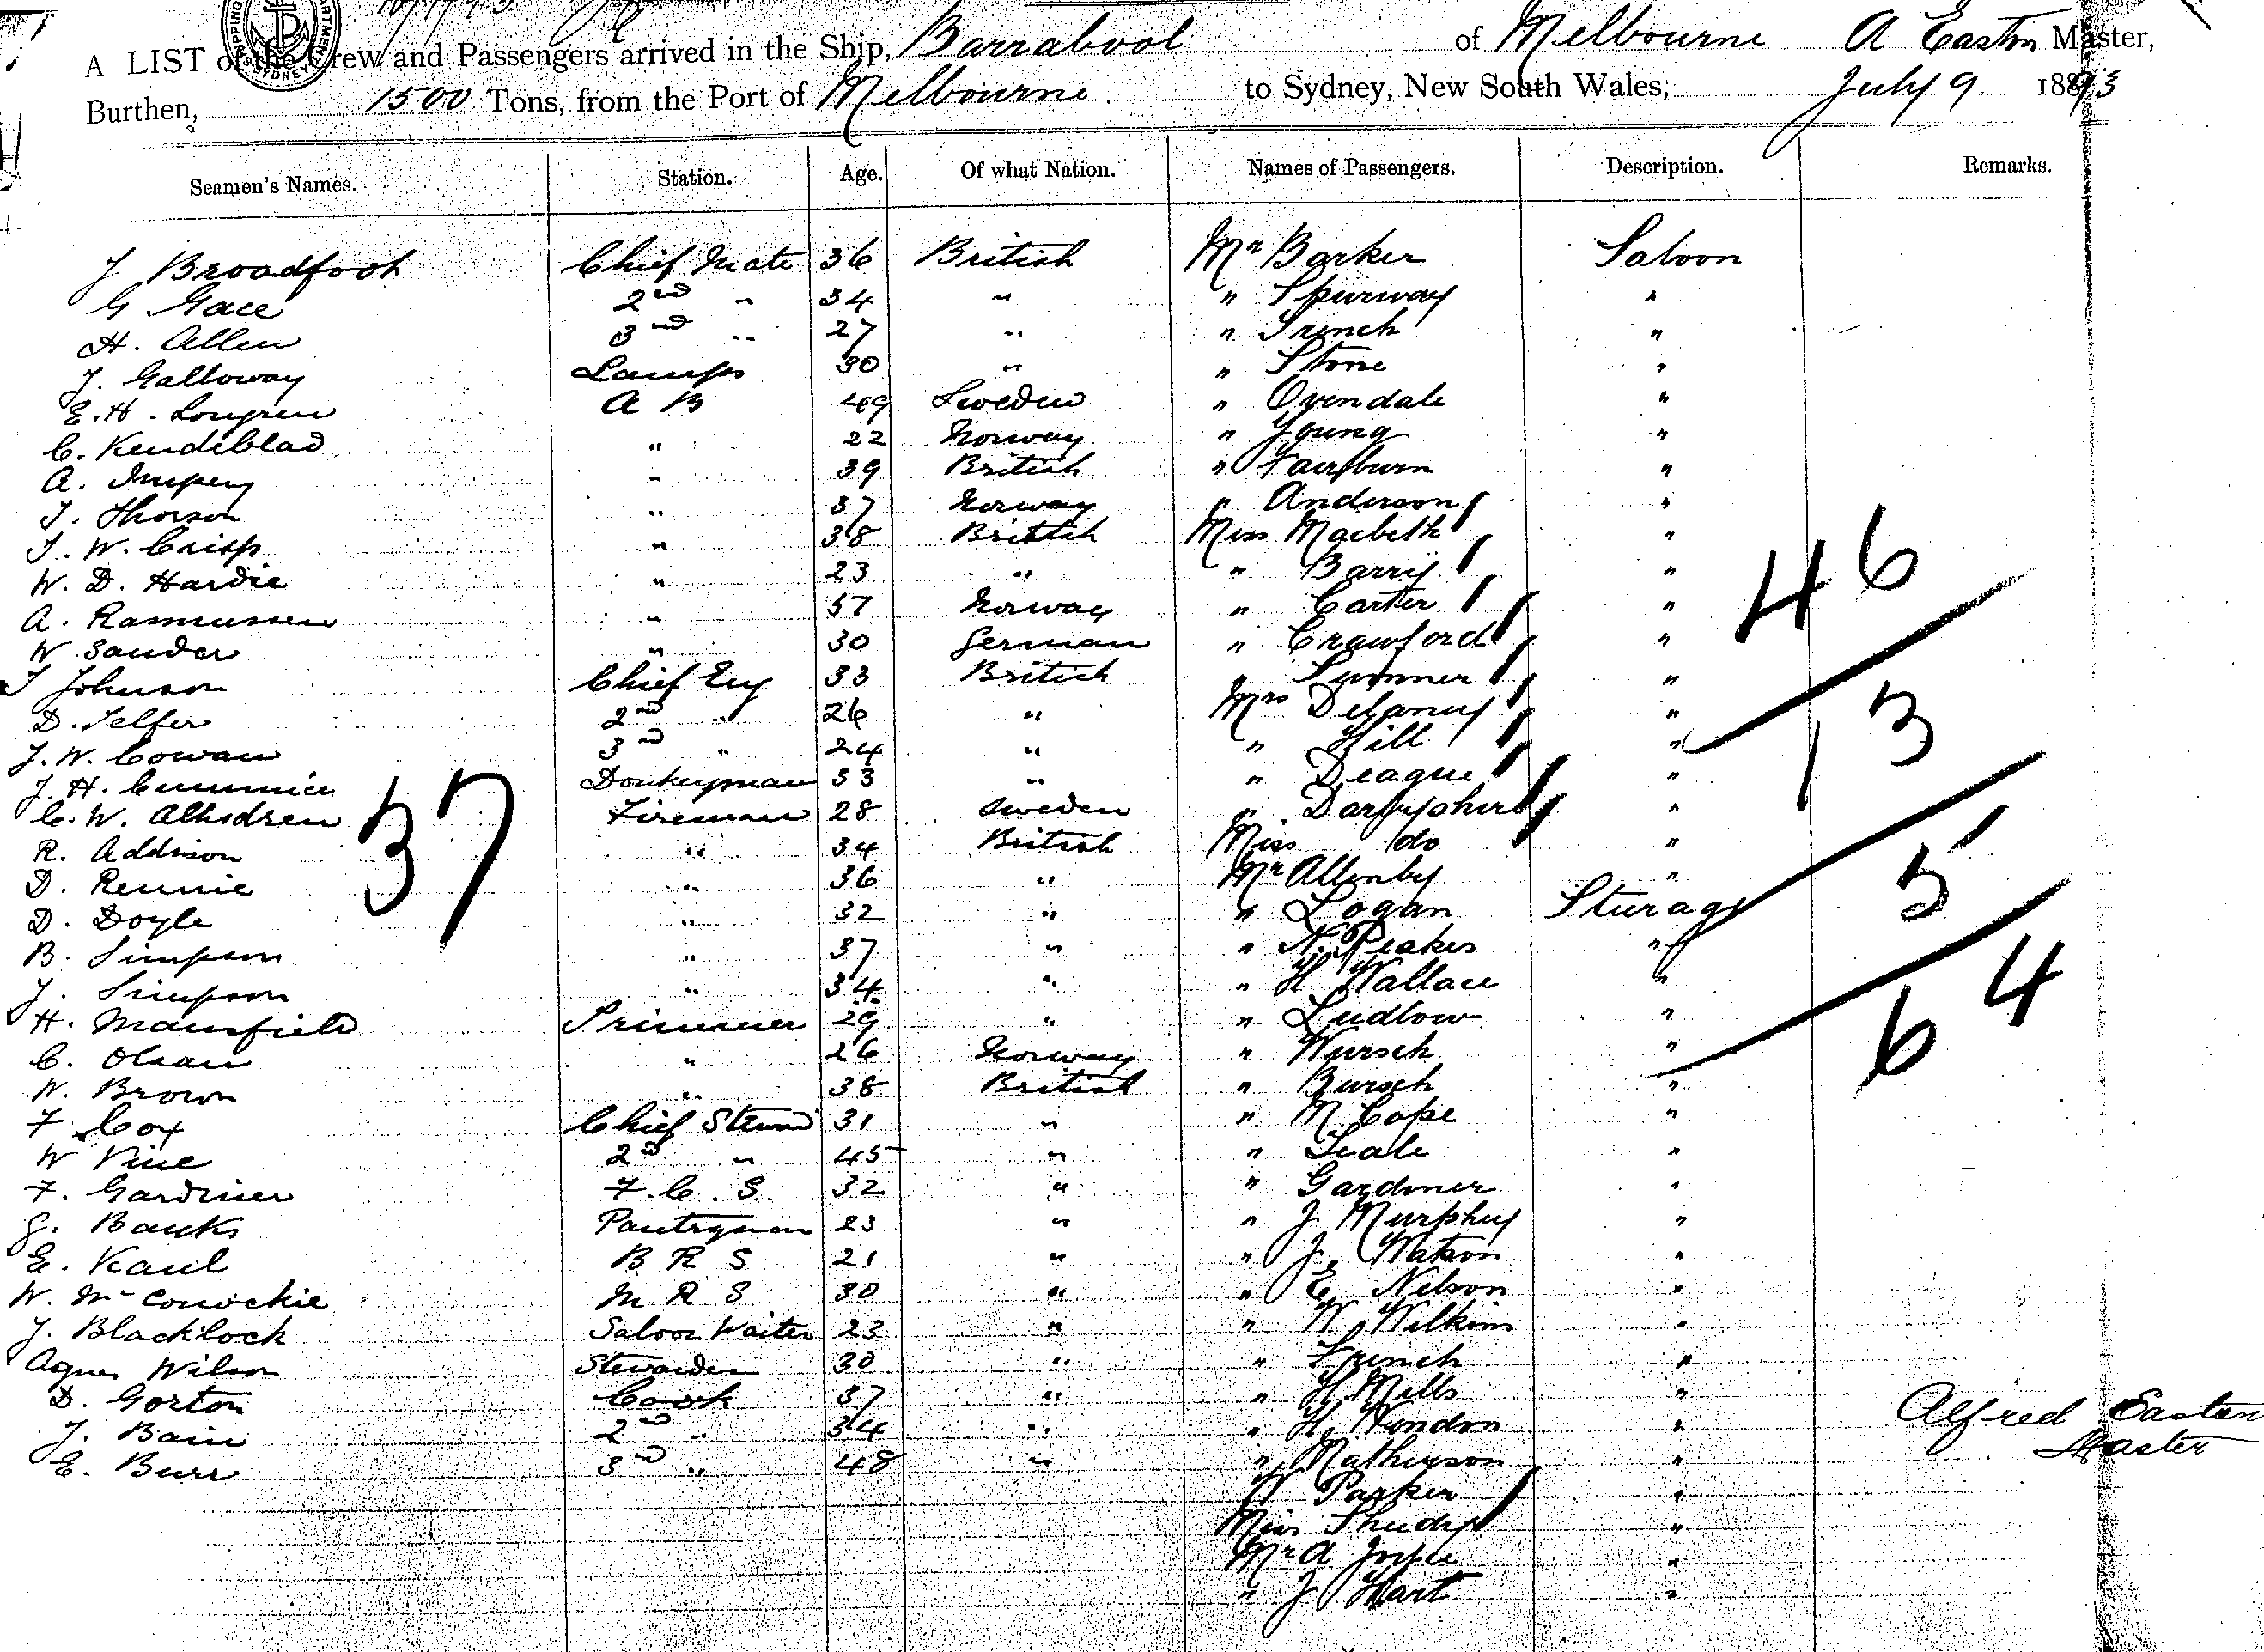 10/7/93
A LIST of the Crew and Passengers arrived in the Ship, Barrabool of Melbourne A Easton Master,
Burthen, 1500 Tons, from the Port of Melbourne to Sydney, New South Wales, July 9 1893
Seamen's Names. Station. Age. Of what Nation. Names of Passengers. Description. Remarks.
J Broadfoot Chief Mate 36 British Mr Barker Saloon
G Gace 2nd " 34 " " Spurway "
H. Allen 3nd " 27 " " Trench "
J. Galloway Lamps 30 " " Stone "
E. H. Longren A B 49 Sweden " Ovendale "
C. Kendeblad " 22 Norway " Young "
A. Impey " 39 British " Fairburn "
T. Thorson " 37 Norway " Anderson "
T. W. Crisp " 38 British Miss Macbeth "
W. D. Hardie " 23 " " Barry "
A. Rasmussen " 57 Norway " Carter " 46
W. Sander " 30 German " Crawford "
T Johnson Chief Eng 33 British " Sumner "
D. Telfer 2nd " 26 " Mrs Delaney " 13
J. W. Cowan 3d " 24 " " Hill "
J. H. Cummice Donkeyman 33 " " Deague "
C. W. Fireman 28 Sweden " Darbyshire "
37
R. Addison " 34 British Miss do "
D. Rennie " 36 " Mr Allenby " 5
D. Doyle " 32 " " Logan Sturage
B. Simpson " 37 " " N. Peakes "
J. Simpson " 34 " " H Wallace " 64
H. Mansfield Trimmer 29 " " Ludlow "
C. Olsan " 26 Norway " Wursch "
W. Brown " 38 British " Bursch "
F. Cox Chief Steward 31 " " M Cope "
W Vine 2d " 45 " " Seale "
F. Gardiner F. C. S 32 " " Gardiner "
G. Banks Pantryman 23 " " J Murphy "
E. Kaul B R S 21 " " J. Watson "
W. McConochie M R S 30 " " E. Nelson "
J. Blacklock Saloon Waiter 23 " " W Wilkins "
Agnes Wilson Stewardess 30 " " French "
D. Gorton Cook 37 " " H Mills "
J. Bain 2nd " 34 " " H. "
E. Burr 3d " 48 " " Mathieson "
W Parker "
Miss "
Mr A Joyce "
" J Hart "
Alfred Easton
Master